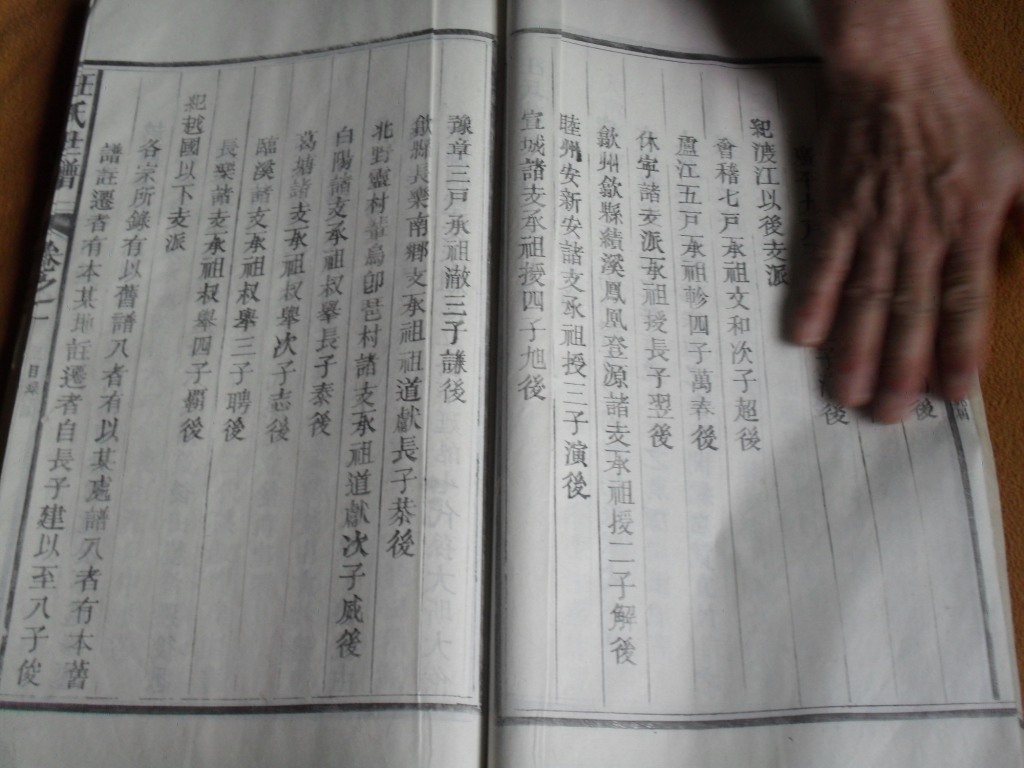 紀渡江以後支派
會稽七戸承祖文和次子超後
廬江五戸承祖診四子萬春後
休寧諸支派承祖授長子翌後
歙州歙縣績溪鳳凰登源諸支承祖授二子解後
睦州安新安諸支承祖授三子演後
宣城諸支承祖授四子旭後
豫章三戸承祖澈三子謙後
歙縣長樂南鄉支承祖祖道獻長子恭後
北野靈村黃烏卽芭村諸支承祖道獻次子威後
白陽諸支承祖叔舉長子泰後
葛塘諸支承祖叔舉次子志後
臨溪諸支承祖叔舉三子聘後
長樂諸支承祖叔舉四子爽後
紀越國以下支派
各宗所錄有以舊譜入者有以某處譜入者有本舊
譜註遷者有本某地註遷者自長子建以至八子俊
汪氏世譜 卷之一 目錄